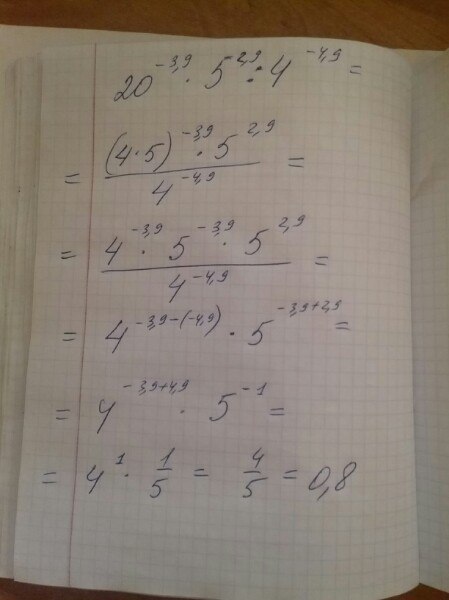 20^{-3,9} · 5^{2,9} : 4^{-4,9} =
= \frac{(4·5)^{-3,9} · 5^{2,9}}{4^{-4,9}} =
= \frac{4^{-3,9} · 5^{-3,9} · 5^{2,9}}{4^{-4,9}} =
= 4^{-3,9-(-4,9)} · 5^{-3,9+2,9} =
= 4^{-3,9+4,9} · 5^{-1} =
= 4^{1} · \frac{1}{5} = \frac{4}{5} = 0,8